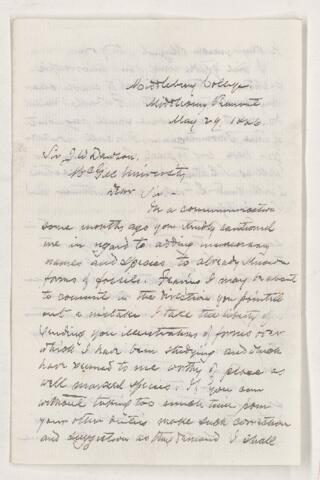 Middlebury College
Middlebury Vermont
May 29, 1886.
Sir J. W. Dawson.
McGill University
Dear Sir -
In a communication
some months ago you kindly cautioned
me in regard to adding unnecessary
names and species to already known
forms of fossils. Fearing I may be about
to commit in the direction you pointed
out a mistake I take the liberty of
sending you illustrations of forms over
which I have been studying and which
have seemed to me worthy of place as
well marked species. If you can
without taking too much time from
your other duties make such correction
and suggestion as they demand I shall